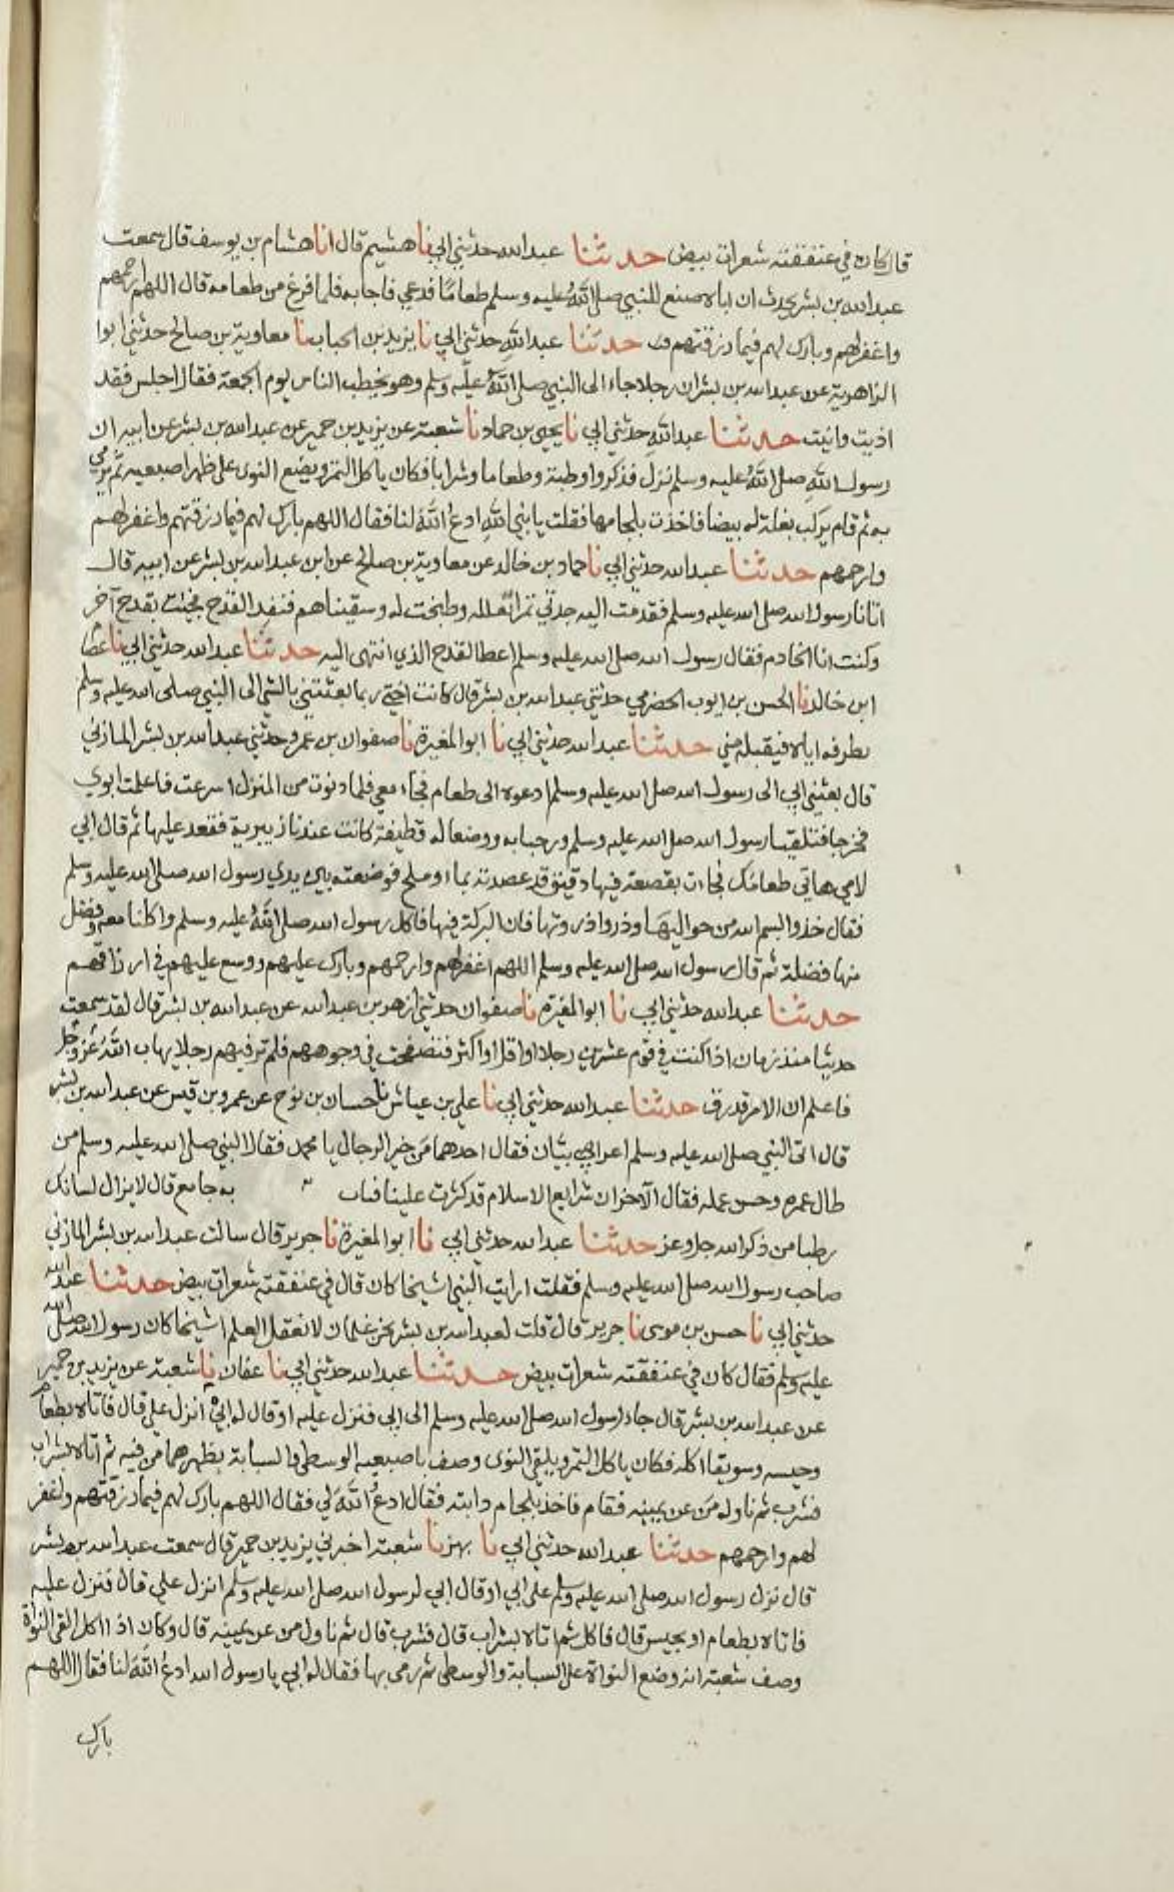 قال كان في عنفقته شعرات بيض حدثنا عبد الله حدثني ابي نا هشيم قال انا هشام بن يوسف قال سمعت
عبد الله بن بشر يحدث ان اباه صنع للنبي صلى الله عليه وسلم طعامًا فدعي فاجابه فلما فرغ من طعامه قال اللهم ارحمهم
واغفر لهم وبارك لهم فيما رزقتهم حدثنا عبد الله حدثني ابي نا يزيد بن الحباب نا معاوية بن صالح حدثني ابوا
الزاهرية عن عبد الله بن بشر ان رجلا جاء الى النبي صلى الله عليه وسلم وهو يخطب الناس يوم الجمعة فقال اجلس فقد
اذيت وانيت حدثنا عبد الله حدثني ابي نا يحيى بن حماد نا شعبة عن يزيد بن خمير عن عبد الله بن بشر عن ابيه ان
رسول الله صلى الله عليه وسلم نزل فذكروا وطبة وطعاما وشرابا فكان ياكل التمر ويضع النوى على ظهر اصبعيه ثم يرمي
به ثم قام يركب بغلة له بيضا فاخذت بلجامها فقلت يا نبي الله ادع الله لنا فقال اللهم بارك لهم فيما رزقتهم واغفر لهم
وارحمهم حدثنا عبد الله حدثني ابي نا حماد بن خالد عن معاوية بن صالح عن ابن عبد الله بن بشر عن ابيه قال
اتانا رسول الله صلى الله عليه وسلم فقدمت اليه جدتي تمرا وطبخت له وسقيناهم فنفد القدح فجئت بقدح آخر
وكنت انا الخادم فقال رسول الله صلى الله عليه وسلم اعط القدح الذي انتهى اليه حدثنا عبد الله حدثني ابي نا عصام
ابن خالد نا الحسن بن ايوب الحضرمي حدثني عبد الله بن بشر قال كانت اختي ربما بعثتني بالشي الى النبي صلى الله عليه وسلم
تطرفه اياه فيقبله مني حدثنا عبد الله حدثني ابي نا ابو المغيرة نا صفوان بن عمرو حدثني عبد الله بن بشر المازني
قال بعثني ابي الى رسول الله صلى الله عليه وسلم ادعوه الى طعام فجاء معي فلما دنوت من المنزل اسرعت فاعلمت ابوي
فخرجا فتلقيا رسول الله صلى الله عليه وسلم ورحبا به ووضعا له قطيفة كانت عندنا زيبرية فقعد عليها ثم قال ابي
لامي هاتي طعامك فجاءت بقصعة فيها دقيق قد عصدته بماء وملح فوضعته بين يدي رسول الله صلى الله عليه وسلم
فقال خذوا بسم الله من حواليها وذروا ذروتها فان البركة فيها فاكل رسول الله صلى الله عليه وسلم واكلنا معه وفضل
منها فضلة ثم قال رسول الله صلى الله عليه وسلم اللهم اغفر لهم وارحمهم وبارك عليهم ووسع عليهم في ارزاقهم
حدثنا عبد الله حدثني ابي نا ابو المغيرة نا صفوان حدثني ازهر بن عبد الله عن عبد الله بن بشر قال لقد سمعت
حديثا منذ زمان اذا كنت في قوم عشرين رجلا او اقل او اكثر فتصفحت في وجوههم فلم تر فيهم رجلا يهاب الله عز وجل
فاعلم ان الامر قد رق حدثنا عبد الله حدثني ابي نا علي بن عياش نا حسان بن نوح عن عمرو بن قيس عن عبد الله بن بشر
قال اتى النبي صلى الله عليه وسلم اعرابيان فقال احدهما من خير الرجال يا محمد فقال النبي صلى الله عليه وسلم من
طال عمره وحسن عمله فقال الآخر ان شرايع الاسلام قد كثرت علينا فباب به جامع قال لا يزال لسانك
رطبا من ذكر الله جل وعز حدثنا عبد الله حدثني ابي نا ابو المغيرة نا حريز قال سالت عبد الله بن بشر المازني
صاحب رسول الله صلى الله عليه وسلم فقلت ارايت النبي اشيخا كان قال في عنفقته شعرات بيض حدثنا عبد الله
حدثني ابي نا حسن بن موسى نا حريز قال قلت لعبد الله بن بشر نحن غلمان لا نعقل العلم اشيخا كان رسول الله صلى الله
عليه وسلم فقال كان في عنفقته شعرات بيض حدثنا عبد الله حدثني ابي نا عفان نا شعبة عن يزيد بن خمير
عن عبد الله بن بشر قال جاء رسول الله صلى الله عليه وسلم الى ابي فنزل عليه او قال له ابي انزل علي قال فاتاه بطعام
وحيسه وسويقا اكله فكان ياكل التمر ويلقي النوى وصف باصبعيه الوسطى والسبابة بظهرهما من فيه ثم اتاه بشراب
فشرب ثم ناوله من عن يمينه فقام فاخذ بلجام دابته فقال ادع الله لي فقال اللهم بارك لهم فيما رزقتهم واغفر
لهم وارحمهم حدثنا عبد الله حدثني ابي نا بهز نا شعبة اخبرني يزيد بن خمير قال سمعت عبد الله بن بشر
قال نزل رسول الله صلى الله عليه وسلم على ابي او قال ابي لرسول الله صلى الله عليه وسلم انزل علي قال فنزل عليه
فاتاه بطعام او بحيس قال فاكل ثم اتاه بشراب قال فشرب قال ثم ناول من عن يمينه قال وكان اذا اكل القى النواة
وصف شعبة انه وضع النواة على السبابة والوسطى ثم رمى بها فقال له ابي يا رسول الله ادع الله لنا فقال اللهم
بارك